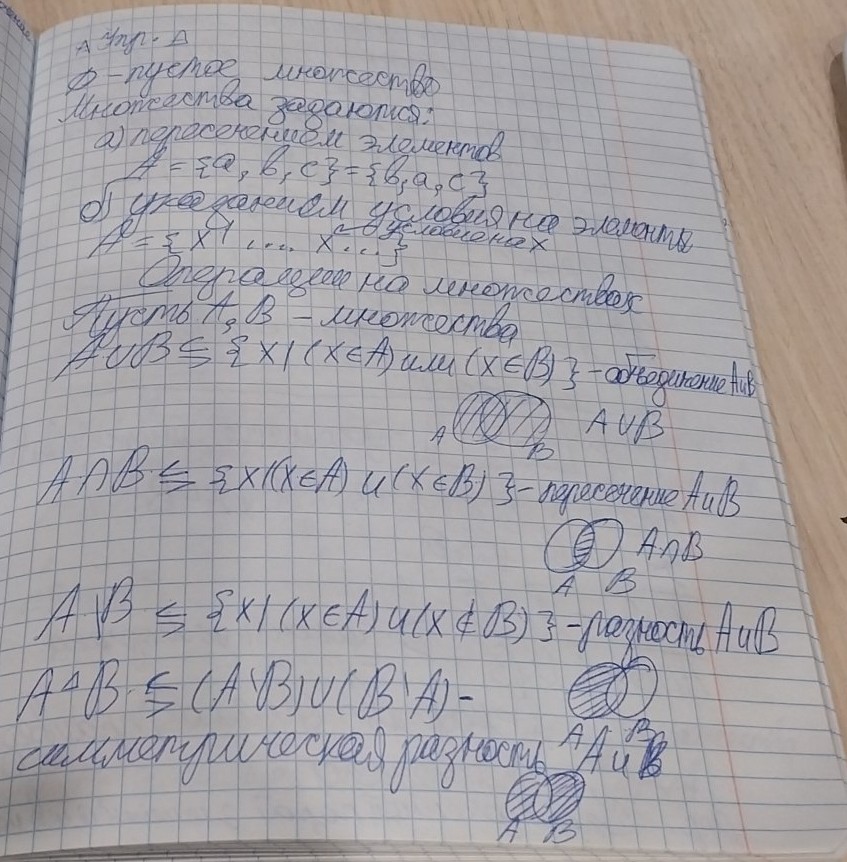 Упр.
∅ - пустое множество
Множества задаются:
а) пересечением элементов
A = {a, b, c} = {b, a, c}
б) указанием условия на элементы
A = {x | ... x ...} условие на x
Операции на множествах
Пусть A, B - множества
A∪B ≤ {x | (x∈A) или (x∈B)} - объединение A и B
A B A∪B
A∩B ≤ {x | (x∈A) и (x∈B)} - пересечение A и B
A∩B
A B
A\B ≤ {x | (x∈A) и (x∉B)} - разность A и B
A△B ≤ (A\B)∪(B\A) -
A B
симметрическая разность A и B
A B